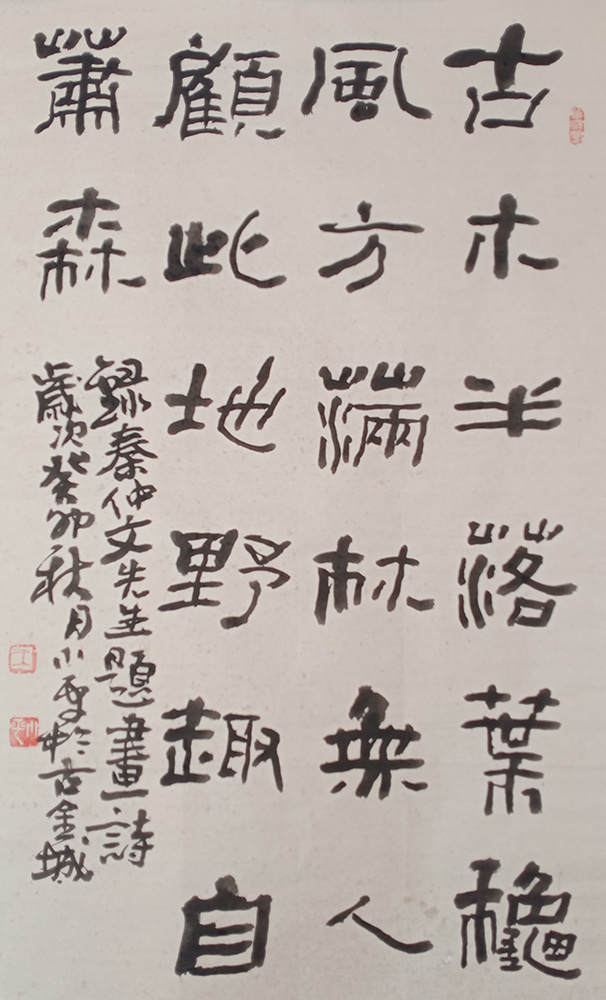 古木半落葉穐
風方滿林無人
顧此地野趣自
蕭森
錄秦仲文先生題畫一詩
歲次癸卯秋月小於古金城